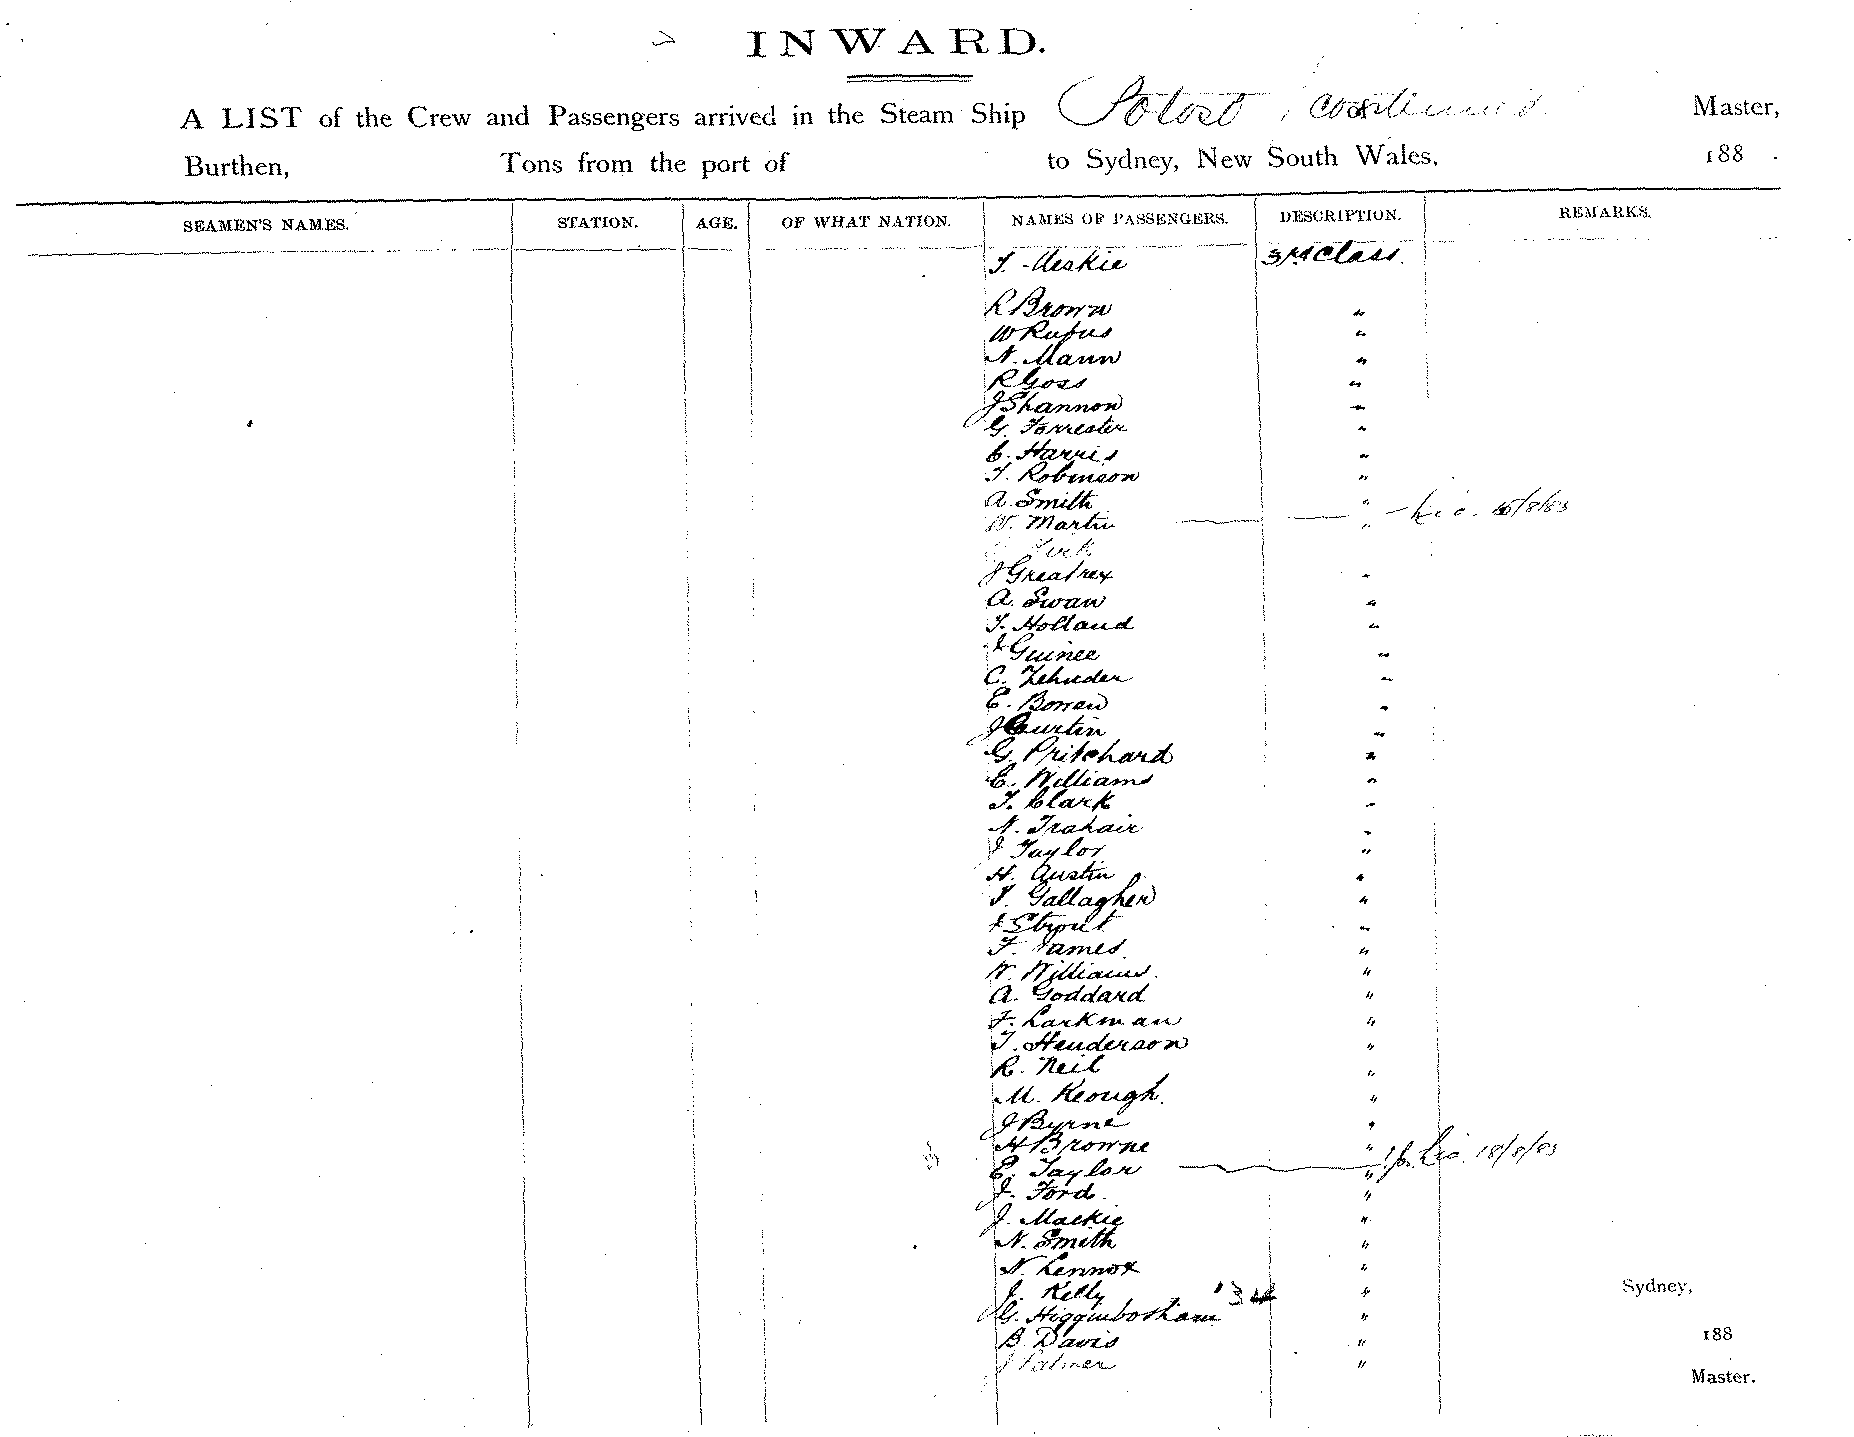 INWARD.
A LIST of the Crew and Passengers arrived in the Steam Ship Potosi, continued Master,
Burthen, Tons from the port of to Sydney, New South Wales, 188 .
SEAMEN'S NAMES. STATION. AGE. OF WHAT NATION. NAMES OF PASSENGERS. DESCRIPTION. REMARKS.
T. Meskie 3rd Class.
R Brown "
W Rufus "
N. Mann "
R Goss "
J Shannon "
G. Forrester "
C. Harris "
T. Robinson "
A. Smith "
W. Martin "
J Greatrex "
A. Swan "
T. Holland "
J Guinee "
C. Zehnder "
E. Bowen "
J Curtin "
G. Pritchard "
C. Williams "
T. Clark "
N. Trahair "
J Taylor "
H. Austin "
T. Gallagher "
J Strout "
F. James "
W. Williams "
A. Goddard "
F. Larkman "
T. Henderson "
R. Neil "
M. Keough. "
J Byrne "
H Browne "
E. Taylor "
J. Ford. "
J. Mackie "
N. Smith "
N. Lennox "
J. Kelly "
G. Higginbotham "
B. Davis "
J Palmer "
Sydney,
188
Master.